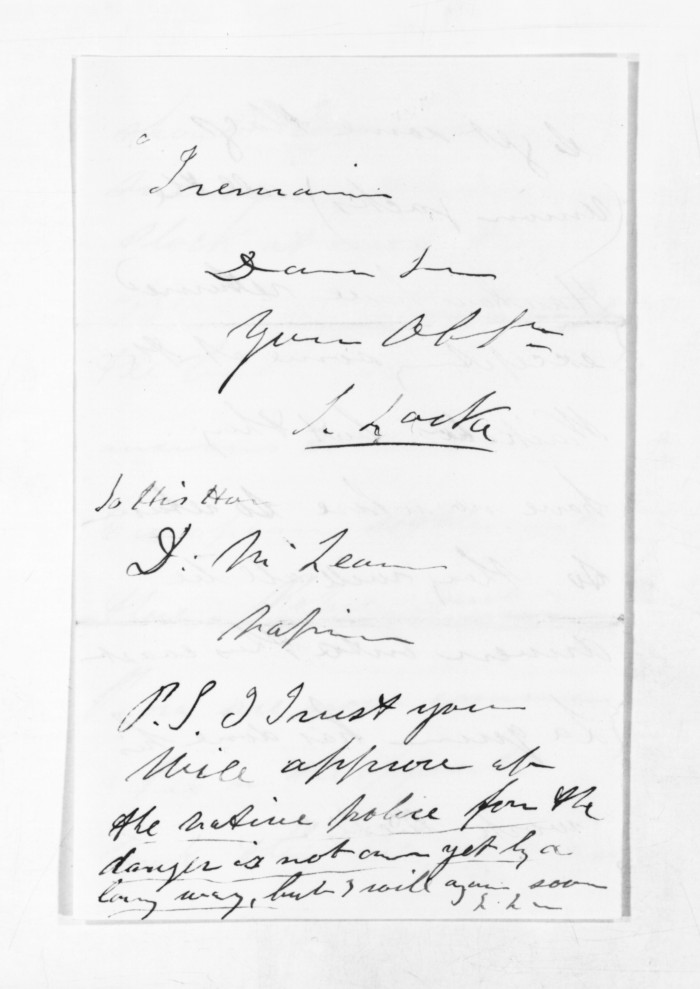 I remain
Dear Sir
Your Obt Srn
S. Locke
To His Hon
D. McLean
Napier
P.S. I trust you
will approve of
the native police for the
danger is not over yet by a
long way, but I will again soon
S. L